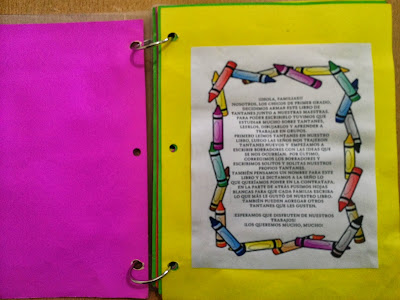 ¡¡HOLA, FAMILIAS!!
NOSOTROS, LOS CHICOS DE PRIMER GRADO,
DECIDIMOS ARMAR ESTE LIBRO DE
TANTANES JUNTO A NUESTRAS MAESTRAS.
PARA PODER ESCRIBIRLO TUVIMOS QUE
ESTUDIAR MUCHO SOBRE TANTANES,
LEERLOS, DIBUJARLOS Y APRENDER A
TRABAJAR EN GRUPOS.
PRIMERO LEÍMOS TANTANES EN NUESTRO
LIBRO, LUEGO LAS SEÑOS NOS TRAJERON
TANTANES NUEVOS Y EMPEZAMOS A
ESCRIBIR BORRADORES CON LAS IDEAS QUE
SE NOS OCURRÍAN. POR ÚLTIMO,
CORREGIMOS LOS BORRADORES Y
ESCRIBIMOS SOLITOS Y SOLITAS NUESTROS
PROPIOS TANTANES.
TAMBIÉN PENSAMOS UN NOMBRE PARA ESTE
LIBRO Y LE DICTAMOS A LA SEÑO LO
QUE QUERÍAMOS PONER EN LA CONTRATAPA.
EN LA PARTE DE ATRÁS PUSIMOS HOJAS
BLANCAS PARA QUE CADA FAMILIA ESCRIBA
LO QUE MÁS LE GUSTÓ DE NUESTRO LIBRO.
TAMBIÉN PUEDEN AGREGAR OTROS
TANTANES QUE LES GUSTEN.
ESPERAMOS QUE DISFRUTEN DE NUESTROS
TRABAJOS!
¡LOS QUEREMOS MUCHO, MUCHO!